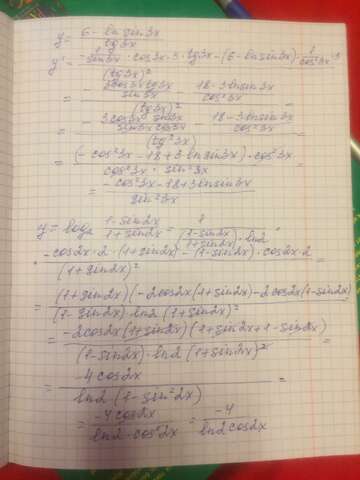 y = (6 - ln sin3x) / (tg 3x)
y' = (-1/sin3x · cos3x · 3 · tg3x - (6 - ln sin3x) · 1/cos²3x · 3) / (tg3x)² =
= (-(3cos3x tg3x)/(sin3x) - (18 - 3 ln sin3x)/(cos²3x)) / (tg3x)² =
= (-(3cos3x sin3x)/(sin3x cos3x) - (18 - 3 ln sin3x)/(cos²3x)) / (tg²3x) =
= ((-cos²3x - 18 + 3 ln sin3x) · cos²3x) / (cos²3x · sin²3x) =
= (-cos²3x - 18 + 3 ln sin3x) / (sin²3x)
y = log₂ (1 - sin2x)/(1 + sin2x) = 1 / ((1 - sin2x)/(1 + sin2x) · ln2) ·
· (-cos2x · 2 · (1 + sin2x) - (1 - sin2x) · cos2x · 2) / (1 + sin2x)² =
= ((1 + sin2x)(-2cos2x(1 + sin2x) - 2cos2x(1 - sin2x)) / ((1 - sin2x) ln2 (1 + sin2x)²) =
= (-2cos2x (1 + sin2x)(1 + sin2x + 1 - sin2x)) / ((1 - sin2x) · ln2 (1 + sin2x)²) =
= (-4cos2x) / (ln2 (1 - sin²2x)) =
= (-4cos2x) / (ln2 · cos²2x) = (-4) / (ln2 cos2x)